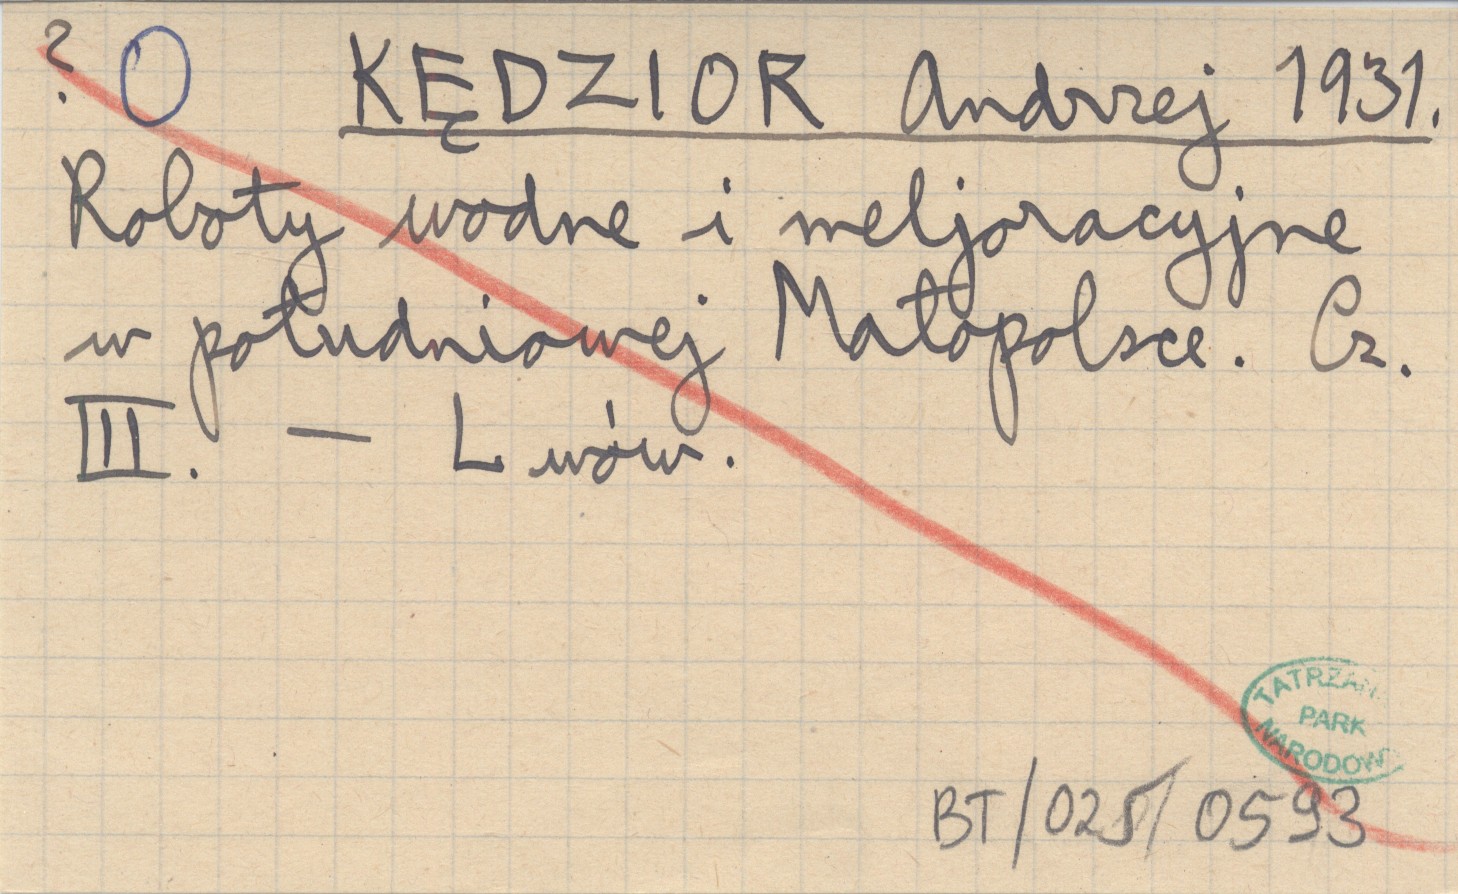 ? O KĘDZIOR Andrzej 1931.
Roboty wodne i meljoracyjne
w południowej Małopolsce. Cz.
III. — Lwów.
TATRZAŃ
PARK
NARODOW
BT/025/0593